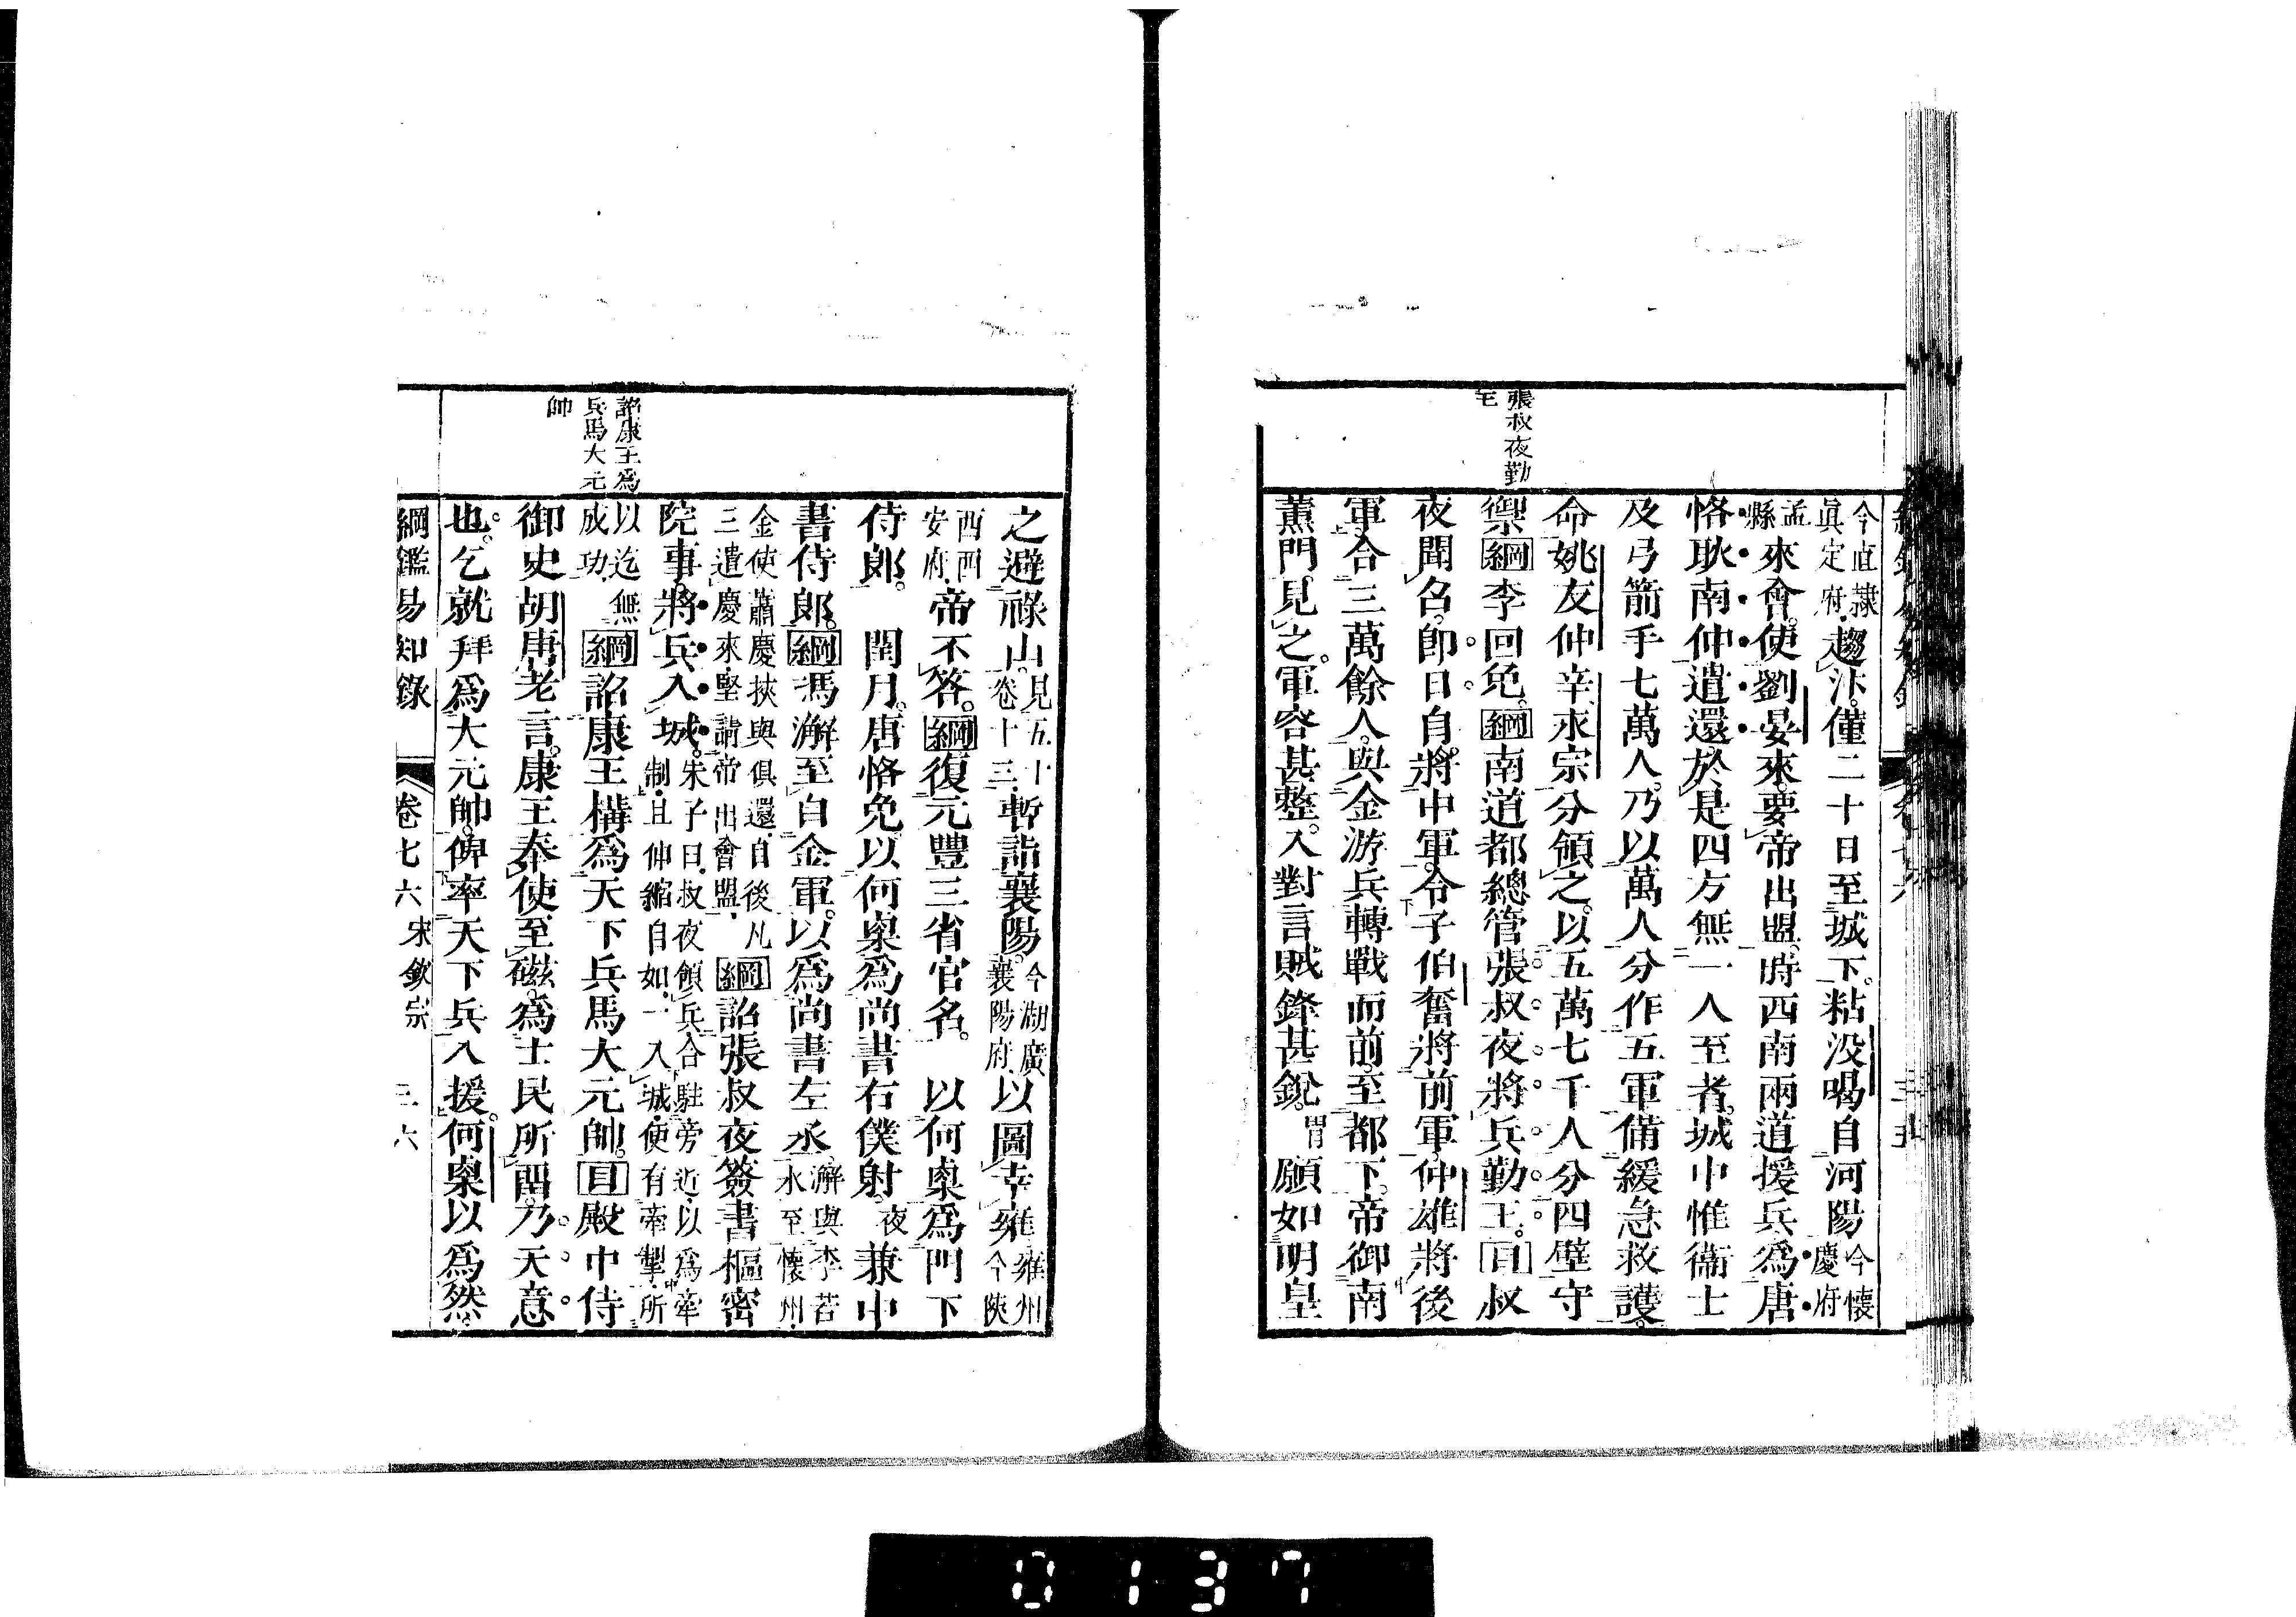 張叔夜勤
王
今直隷
眞定府
趨汴僅二十日至城下。粘没喝自河陽
今懷
慶府
孟
縣
來會。使劉晏來要帝出盟。時西南兩道援兵爲唐
恪耿南仲遣還於是四方無一人至者城中惟衞士
及弓箭手七萬人乃以萬人分作五軍備緩急救護。
命姚友仲辛永宗分領之。以五萬七千人分四壁守
禦綱李回免。綱南道都總管張叔夜將兵勤王。目叔
夜聞召。卽日自將中軍令子伯奮將前軍仲雄將後
軍合三萬餘人。與金游兵轉戰而前至都下。帝御南
薰門見之。軍容甚整。入對言賊鋒甚銳。願如明皇
詔康王爲
兵馬大元
帥
之避祿山。
見五十
卷十三
暫詣襄陽。
今湖廣
襄陽府
以圖幸雍
雍州
今陝
西西
安府
帝不答。綱復元豐三省官名。 以何㮚爲門下
侍郎。 閏月。唐恪免以何㮚爲尚書右僕射。兼中
書侍郎。綱馮澥至自金軍。以爲尚書左丞。
澥與李若
水至懷州
金使蕭慶挾與俱還自後凡
三遣慶來堅請帝出會盟
綱詔張叔夜簽書樞密
院事將兵入城。
朱子曰叔夜領兵合駐旁近以爲牽
制且伸縮自如一入城使有牽掣所
以迄無
成功
綱詔康王構爲天下兵馬大元帥。目殿中侍
御史胡唐老言。康王奉使至磁爲士民所留乃天意
也。乞就拜爲大元帥俾率天下兵入援。何㮚以爲然。
綱鑑易知錄 卷七六 宋欽宗 三六
0137